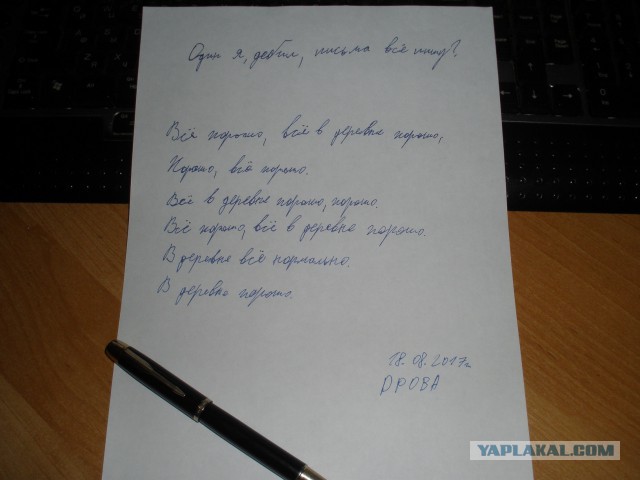 Один я, дебил, письма всё пишу?
Всё хорошо, всё в деревне хорошо,
Хорошо, всё хорошо.
Всё в деревне хорошо, хорошо.
Всё хорошо, всё в деревне хорошо.
В деревне всё нормально.
В деревне хорошо.
18.08.2017г
DРОВА
YAPLAKAL.COM